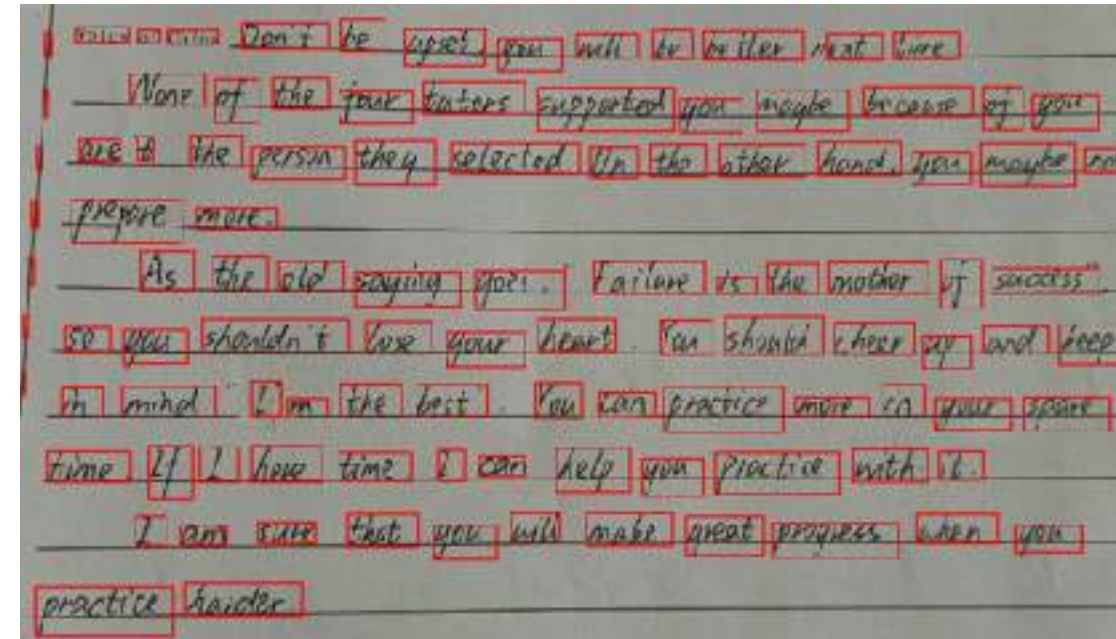 Don't be upset, you will be better next time
None of the four tuters supported you maybe because of you
are t the person they selected On the other hand, you maybe no
prepare more.
As the old saying goes. "Failure is the mother of success".
so you shouldn't lose your heart. You should cheer up and keep
in mind "I'm the best". You can practice more in your spare
time If I have time I can help you practice with it.
I am sure that you will make great progress when you
practice harder